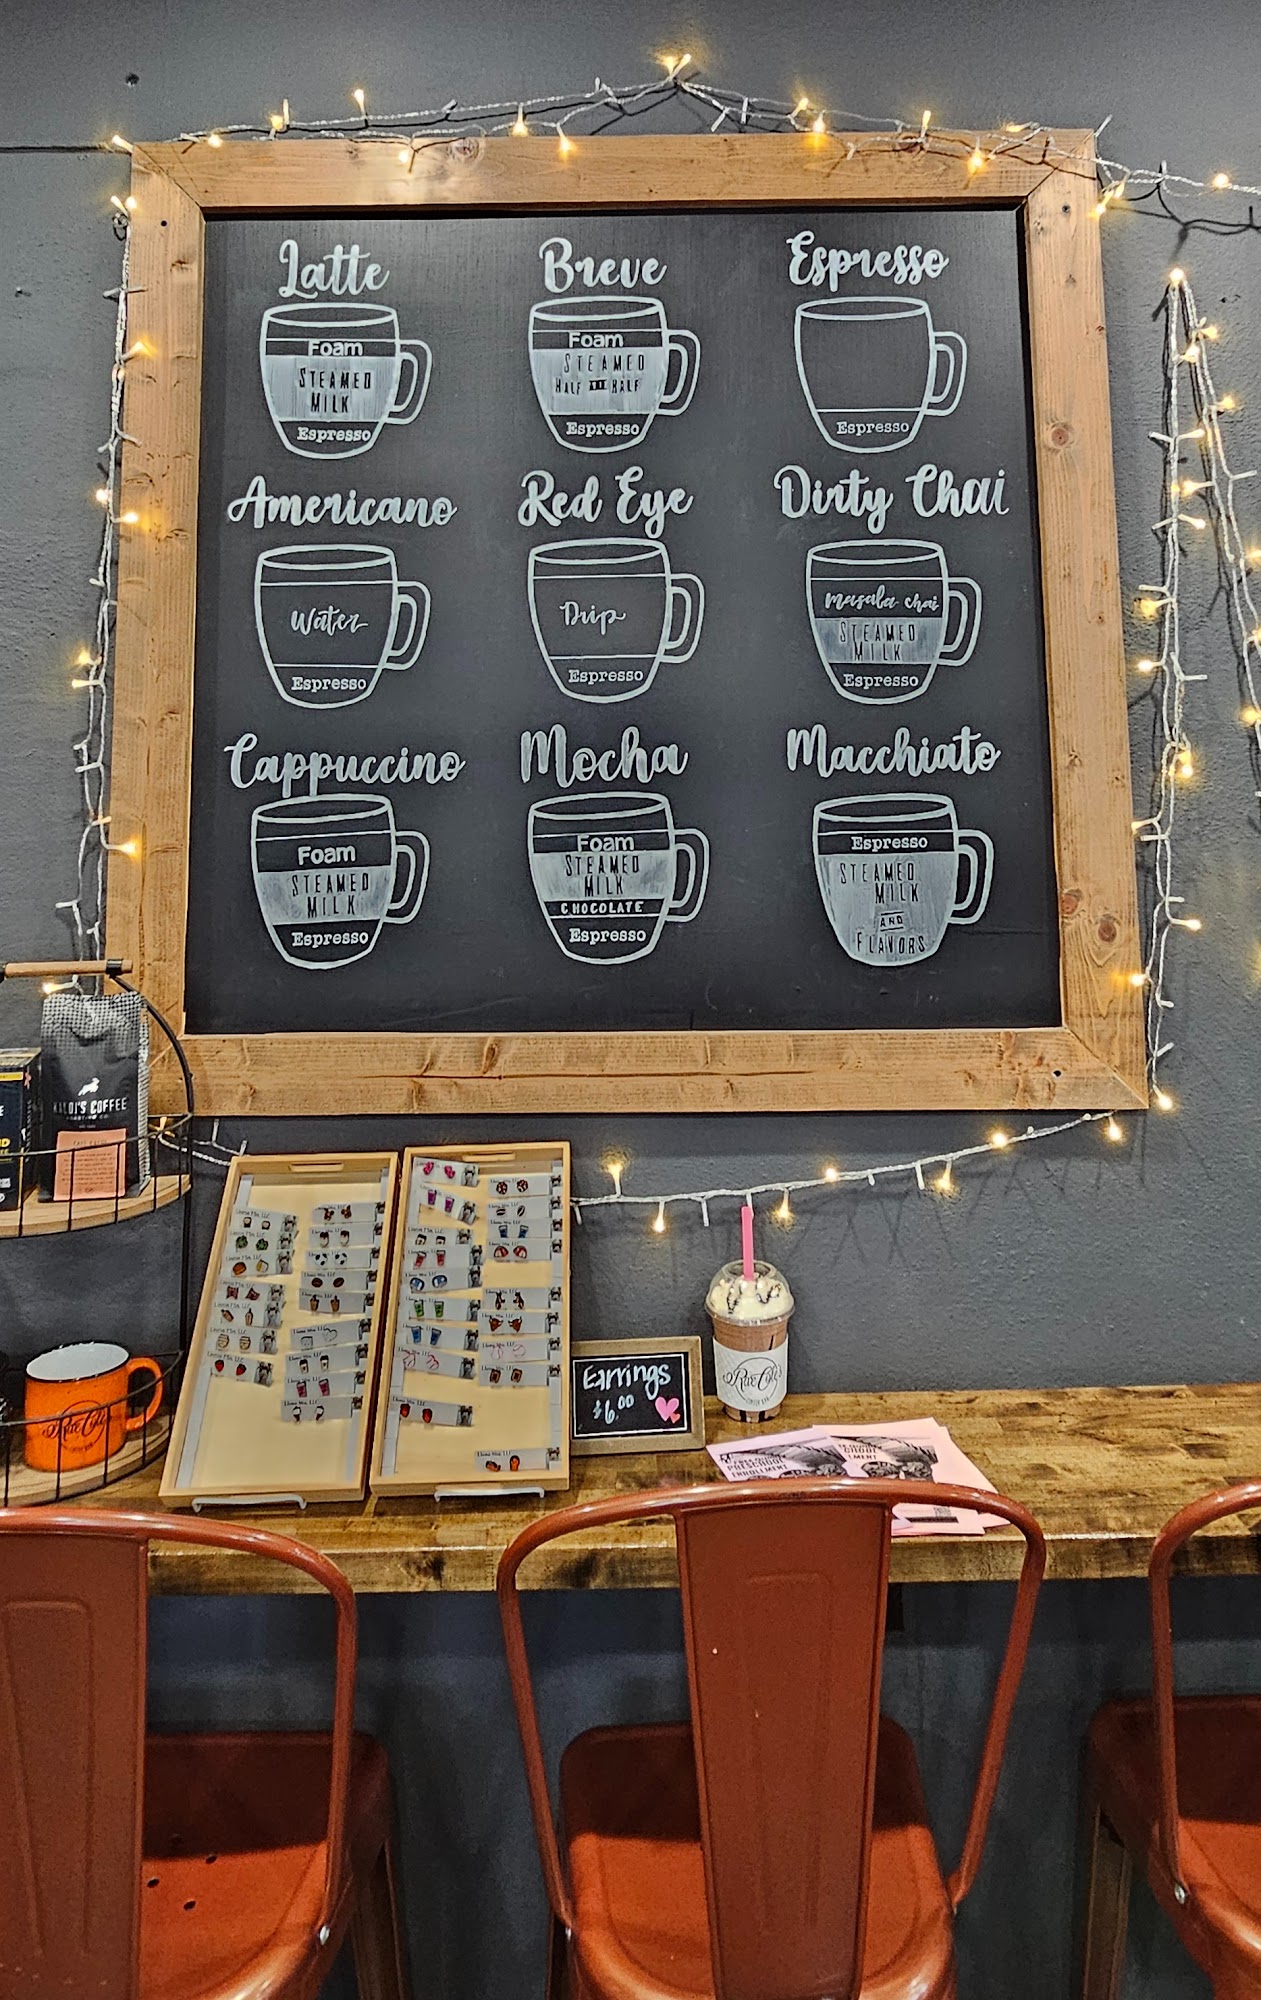 Latte
Foam
STEAMED
MILK
Espresso
Breve
Foam
STEAMED
HALF AND HALF
Espresso
Espresso
Espresso
Americano
Water
Espresso
Red Eye
Drip
Espresso
Dirty Chai
masala chai
STEAMED
MILK
Espresso
Cappuccino
Foam
STEAMED
MILK
Espresso
Mocha
Foam
STEAMED
MILK
CHOCOLATE
Espresso
Macchiato
Espresso
STEAMED
MILK
AND
FLAVORS
KALDI'S COFFEE
ROASTING CO.
Earrings
$6.00
PRESCHOOL
ENROLLMENT